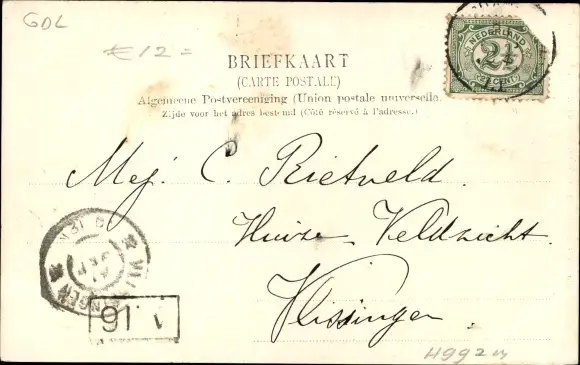 GDL
€12=
BRIEFKAART
(CARTE POSTALE)
Algemeene Postvereeniging (Union postale universelle.
Zijde voor het adres bestemd (Côté réservé à l'adresse.)
NEDERLAND
2½
CENT
Mej. C. Rietveld.
Huize Veldzicht.
Vlissingen.
VLISSINGEN
16
4992